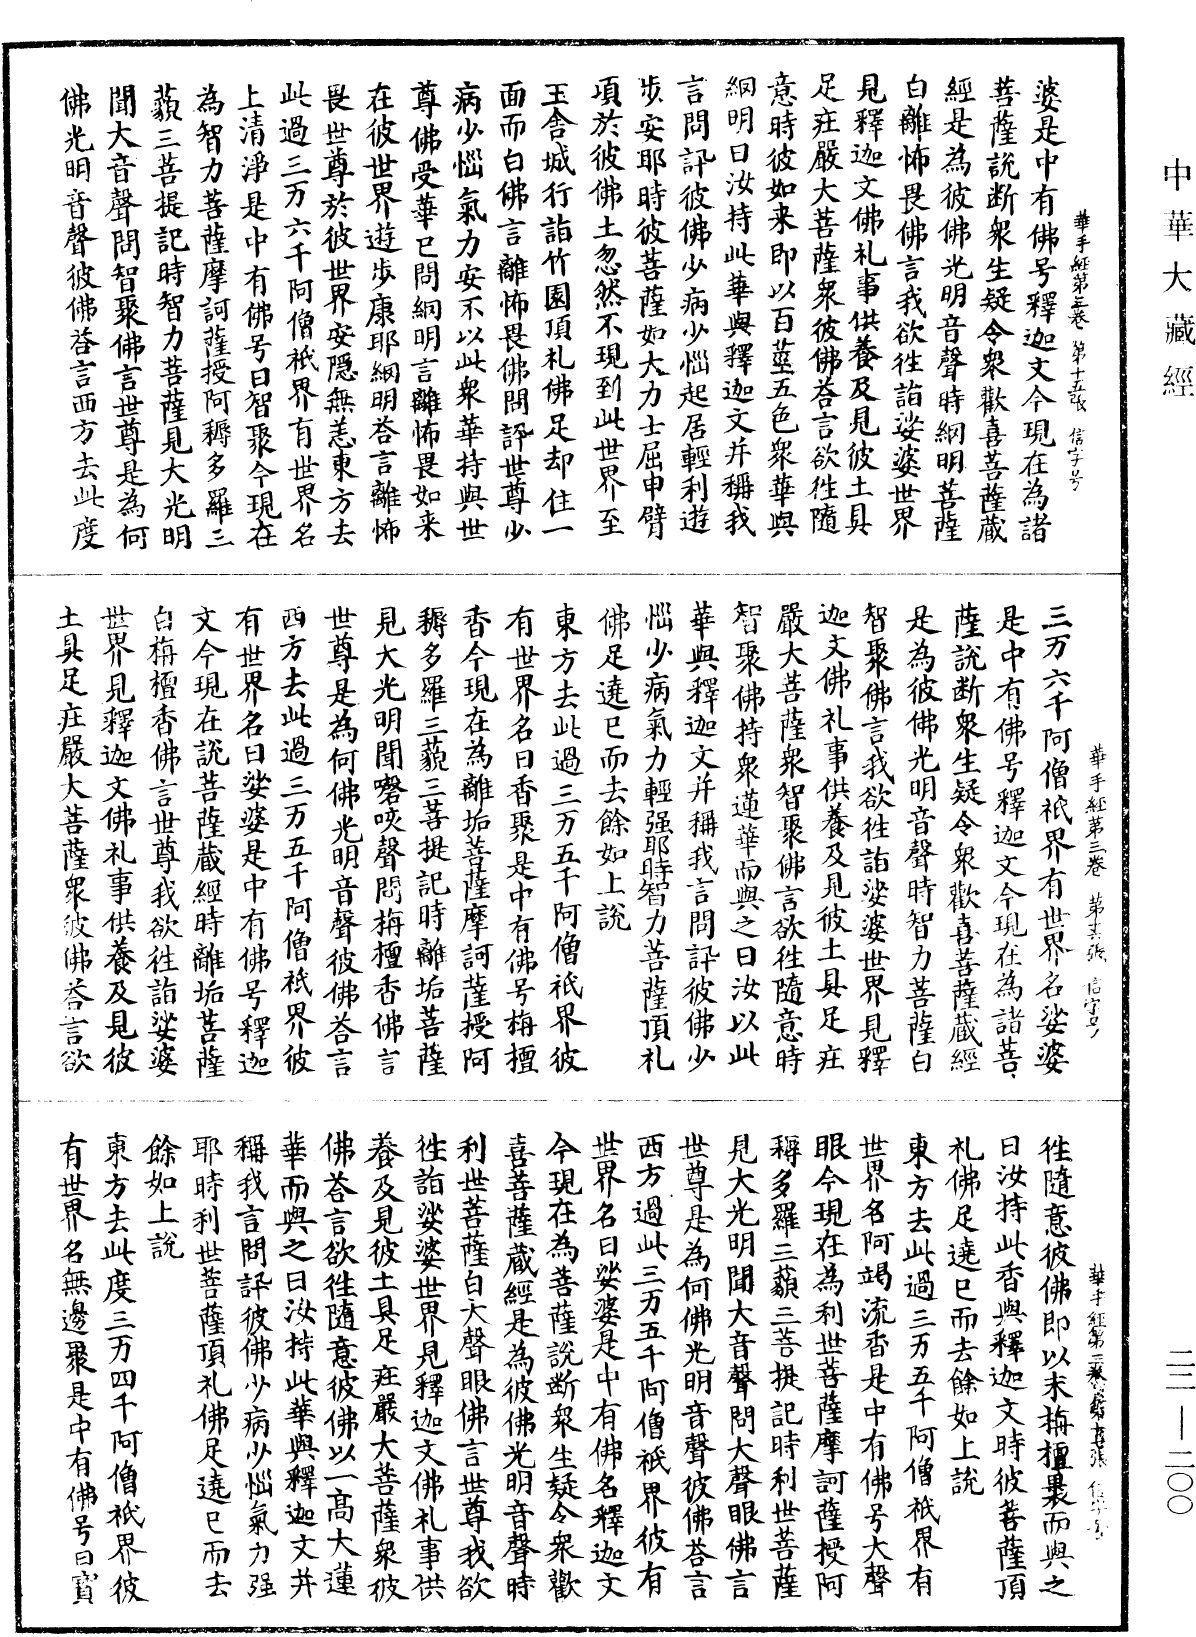 中華大藏經
婆是中有佛号釋迦文今現在為諸
菩薩說断衆生疑令衆歡喜菩薩蔵
經是為彼佛光明音聲時網明菩薩
白離怖畏佛言我欲徃詣娑婆世界
見釋迦文佛礼事供養及見彼土具
足疘嚴大菩薩衆彼佛荅言欲徃隨
意時彼如来即以百莖五色衆華與
網明曰汝持此華與釋迦文并稱我
言問訊彼佛少病少惱起居輕利遊
步安耶時彼菩薩如大力士屈申臂
項於彼佛土忽然不現到此世界至
王舎城行詣竹園頂礼佛足却住一
面而白佛言離怖畏佛問訊世尊少
病少惱氣力安不以此衆華持與世
尊佛受華已問網明言離怖畏如来
在彼世界遊步康耶網明荅言離怖
畏世尊於彼世界安隠無恙東方去
此過三万六千阿僧祇界有世界名
上清淨是中有佛号曰智聚今現在
為智力菩薩摩訶薩授阿耨多羅三
藐三菩提記時智力菩薩見大光明
聞大音聲問智聚佛言世尊是為何
佛光明音聲彼佛荅言西方去此度
華手經第三卷 第十五張 信字号
三万六千阿僧祇界有世界名娑婆
是中有佛号釋迦文今現在為諸菩
薩說断衆生疑令衆歡喜菩薩蔵經
是為彼佛光明音聲時智力菩薩白
智聚佛言我欲徃詣娑婆世界見釋
迦文佛礼事供養及見彼土具足疘
嚴大菩薩衆智聚佛言欲徃隨意時
智聚佛持衆蓮華而與之曰汝以此
華與釋迦文并稱我言問訊彼佛少
惱少病氣力輕强耶時智力菩薩頂礼
佛足遶已而去餘如上說
東方去此過三万五千阿僧祇界彼
有世界名曰香聚是中有佛号栴檀
香今現在為離垢菩薩摩訶薩授阿
耨多羅三藐三菩提記時離垢菩薩
見大光明聞謦欬聲問栴檀香佛言
世尊是為何佛光明音聲彼佛荅言
西方去此過三万五千阿僧祇界彼
有世界名曰娑婆是中有佛号釋迦
文今現在說菩薩蔵經時離垢菩薩
白栴檀香佛言世尊我欲徃詣娑婆
世界見釋迦文佛礼事供養及見彼
土具足疘嚴大菩薩衆彼佛荅言欲
華手經第三卷 第十六張 信字号
徃隨意彼佛即以末栴檀裹而與之
曰汝持此香與釋迦文時彼菩薩頂
礼佛足遶已而去餘如上說
東方去此過三万五千阿僧祇界有
世界名阿竭流香是中有佛号大聲
眼今現在為利世菩薩摩訶薩授阿
耨多羅三藐三菩提記時利世菩薩
見大光明聞大音聲問大聲眼佛言
世尊是為何佛光明音聲彼佛荅言
西方過此三万五千阿僧祇界彼有
世界名曰娑婆是中有佛名釋迦文
今現在為菩薩說断衆生疑令衆歡
喜菩薩蔵經是為彼佛光明音聲時
利世菩薩白大聲眼佛言世尊我欲
徃詣娑婆世界見釋迦文佛礼事供
養及見彼土具足疘嚴大菩薩衆彼
佛荅言欲徃隨意彼佛以一高大蓮
華而與之曰汝持此華與釋迦文并
稱我言問訊彼佛少病少惱氣力强
耶時利世菩薩頂礼佛足遶已而去
餘如上說
東方去此度三万四千阿僧祇界彼
有世界名無邊聚是中有佛号曰寳
華手經第三卷 第十七張 信字号
二二—二〇〇